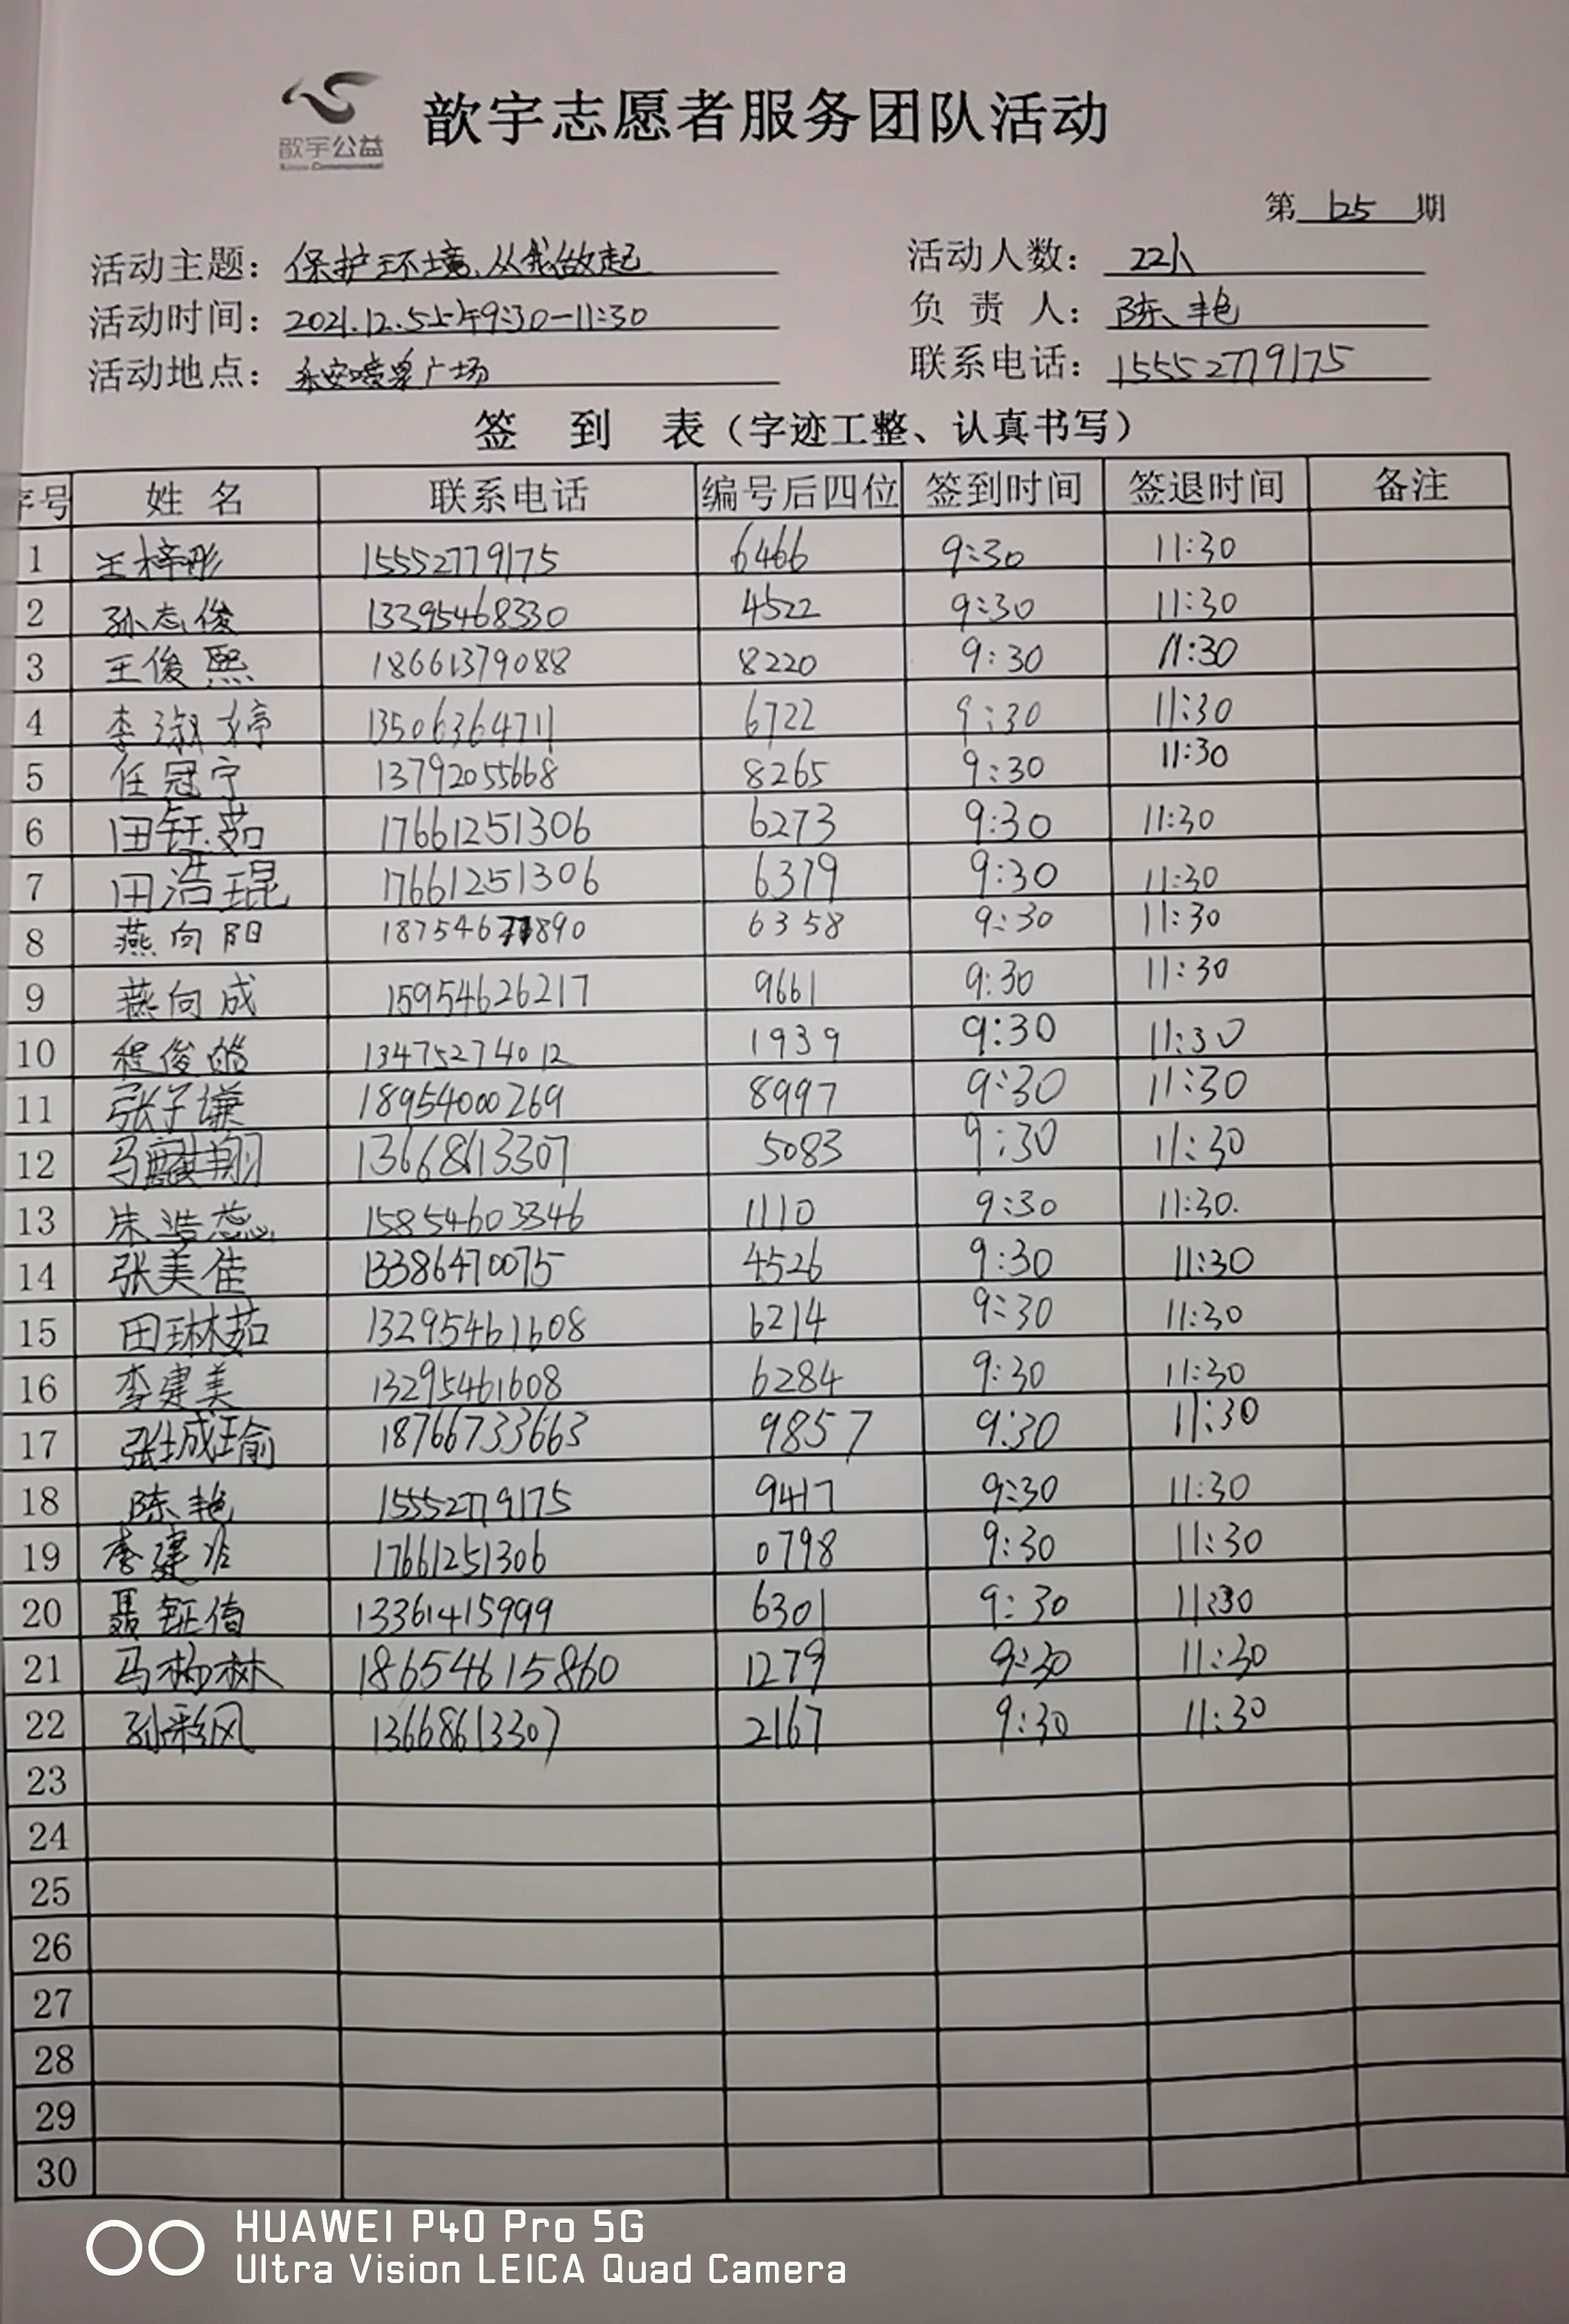 歆宇公益
歆宇志愿者服务团队活动
第 125 期
活动主题：保护环境、从我做起 活动人数：22人
活动时间：2021.12.5上午9:30-11:30 负责人：陈艳
活动地点：永安喷泉广场 联系电话：15552779175
签 到 表（字迹工整、认真书写）
序号 姓名 联系电话 编号后四位 签到时间 签退时间 备注
1 王梓彤 15552779175 6466 9:30 11:30
2 孙志俊 13395468330 4522 9:30 11:30
3 王俊熙 18661379088 8220 9:30 11:30
4 李淑婷 13506364711 6722 9:30 11:30
5 任冠宁 13792055668 8265 9:30 11:30
6 田钰茹 17661251306 6273 9:30 11:30
7 田浩琨 17661251306 6379 9:30 11:30
8 燕向阳 18754671890 6358 9:30 11:30
9 燕向成 15954626217 9661 9:30 11:30
10 程俊皓 13475274012 1939 9:30 11:30
11 张子谦 18954000269 8997 9:30 11:30
12 马麒翔 13668613307 5083 9:30 11:30
13 朱浩蕊 15854603346 1110 9:30 11:30.
14 张美佳 13386470075 4526 9:30 11:30
15 田琳茹 13295461608 6214 9:30 11:30
16 李建美 13295461608 6284 9:30 11:30
17 张城瑜 18766733663 9857 9:30 11:30
18 陈艳 15552779175 9417 9:30 11:30
19 李建 17661251306 0798 9:30 11:30
20 聂钲 13361415999 6301 9:30 11:30
21 马杨林 18654615860 1279 9:30 11:30
22 孙彩风 13668613307 2167 9:30 11:30
23
24
25
26
27
28
29
30
HUAWEI P40 Pro 5G
Ultra Vision LEICA Quad Camera